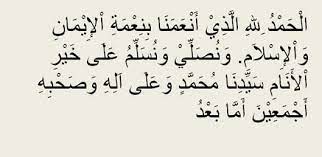 الْحَمْدُ لِلهِ الَّذِيْ أَنْعَمَنَا بِنِعْمَةِ اْلإِيْمَانِ
وَاْلإِسْلَامِ. وَنُصَلِّيْ وَنُسَلِّمُ عَلَى خَيْرِ
اْلأَنَامِ سَيِّدِنَا مُحَمَّدٍ وَعَلَى آلِهِ وَصَحْبِهِ
أَجْمَعِيْنَ أَمَّا بَعْدُ